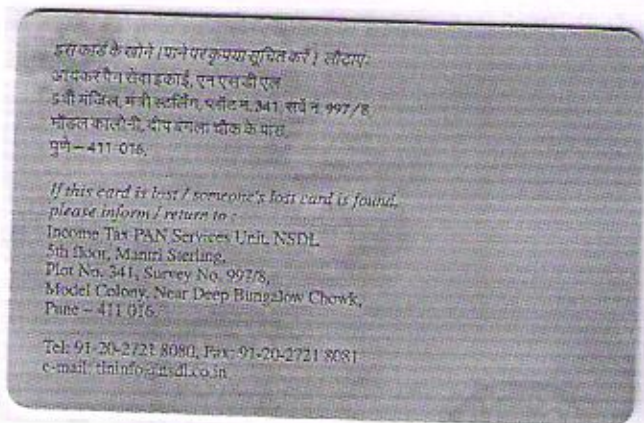 इस कार्ड के खोने / पाने पर कृपया सूचित करें / लौटाएं:
आयकर पैन सेवा इकाई, एन एस डी एल
5 वीं मंजिल, मंत्री स्टर्लिंग, प्लॉट नं. 341, सर्वे नं. 997/8,
मॉडल कालोनी, दीप बंगला चौक के पास,
पुणे – 411 016.
If this card is lost / someone's lost card is found,
please inform / return to :
Income Tax PAN Services Unit, NSDL
5th floor, Mantri Sterling,
Plot No. 341, Survey No. 997/8,
Model Colony, Near Deep Bungalow Chowk,
Pune – 411 016.
Tel: 91-20-2721 8080, Fax: 91-20-2721 8081
e-mail: tininfo@nsdl.co.in